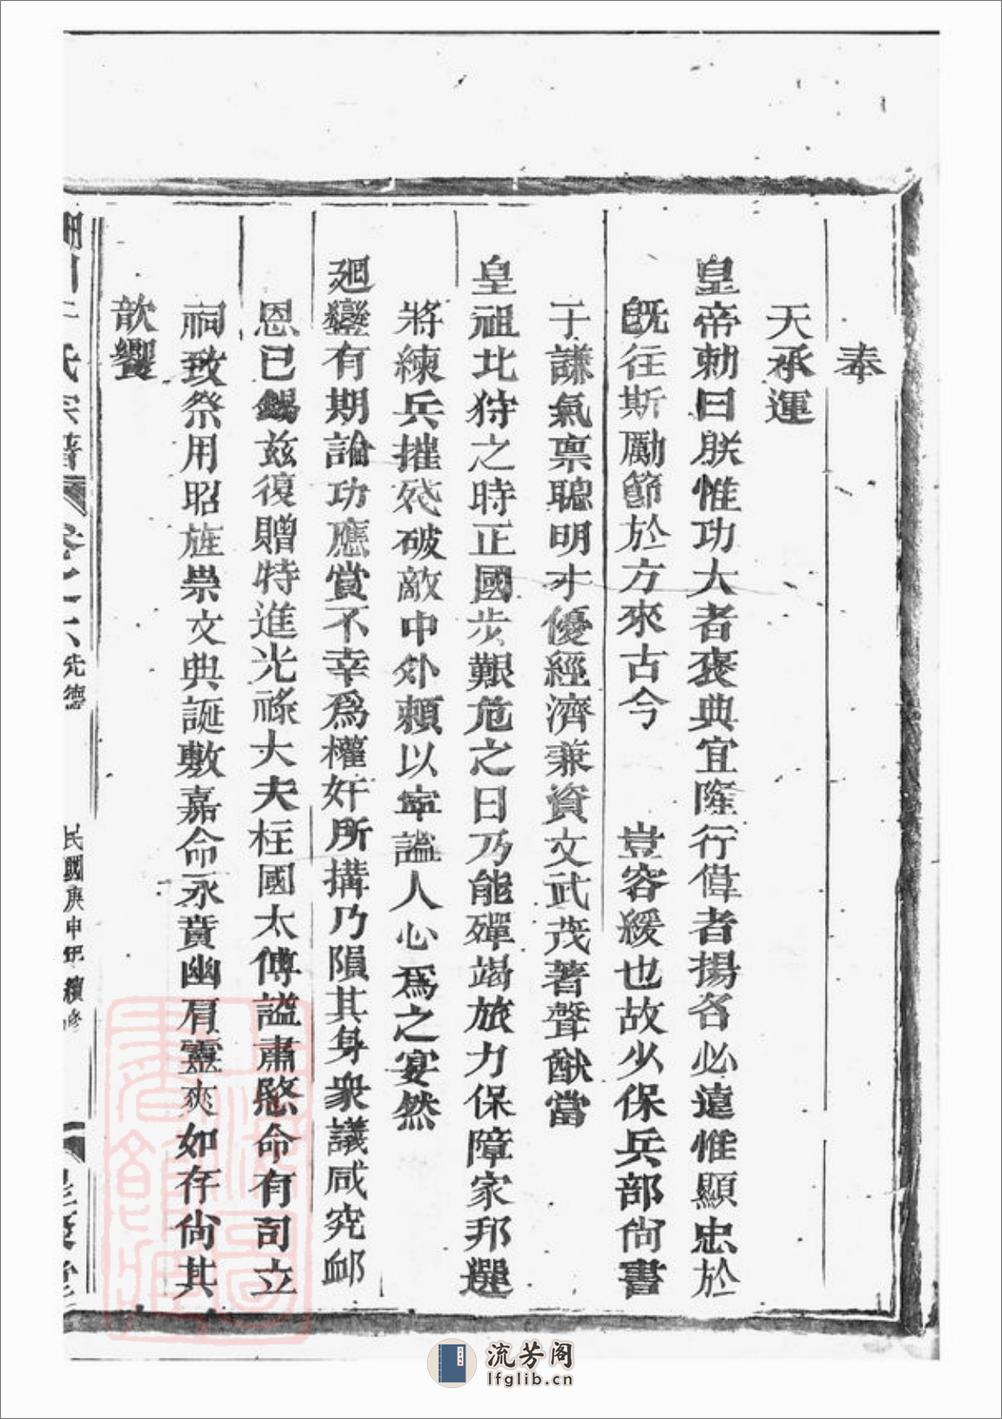 奉
天承運
皇帝勅曰朕惟功大者褒典宜隆行偉者揚名必遠惟顯忠於
旣往斯勵節於方來古今 豈容緩也故少保兵部尙書
于謙氣禀聰明才優經濟兼資文武茂著聲猷當
皇祖北狩之時正國步艱危之日乃能殫竭旅力保障家邦選
將練兵摧殘破敵中外賴以寧謐人心爲之宴然
廻鑾有期論功應賞不幸爲權奸所搆乃隕其身衆議咸究邮
恩已錫玆復贈特進光祿大夫柱國太傅諡肅愍命有司立
祠致祭用昭旌崇文典誕敷嘉命永賁幽肩靈爽如存尙其
歆饗
氏宗譜 卷之六 先德 民國庚申年續修
流芳阁
lfglib.cn